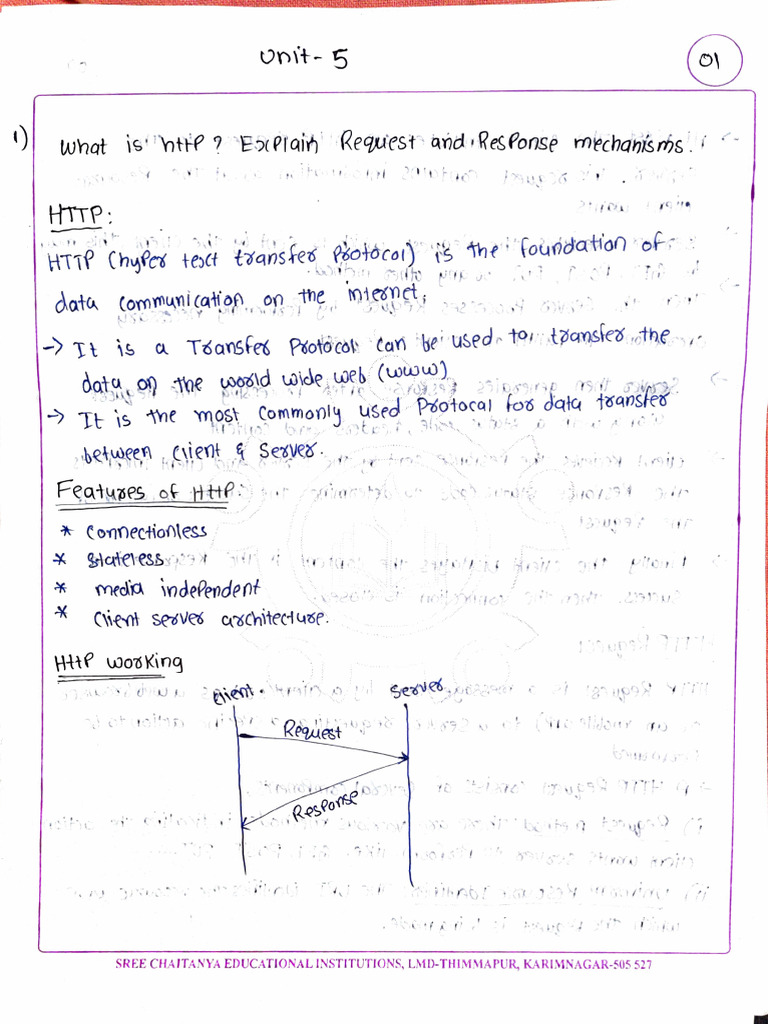 Unit - 5
01
1) What is http? Explain Request and Response mechanisms.
HTTP:
HTTP (hyper text transfer Protocol) is the foundation of
data communication on the internet,
-> It is a Transfer Protocol can be used to transfer the
data on the world wide web (www)
-> It is the most commonly used Protocal for data transfer
between Client & Server.
Features of HTTP
* Connectionless
* Stateless
* media independent
* Client server architecture.
Http working
Client Server
Request
Response
SREE CHAITANYA EDUCATIONAL INSTITUTIONS, LMD-THIMMAPUR, KARIMNAGAR-505 527